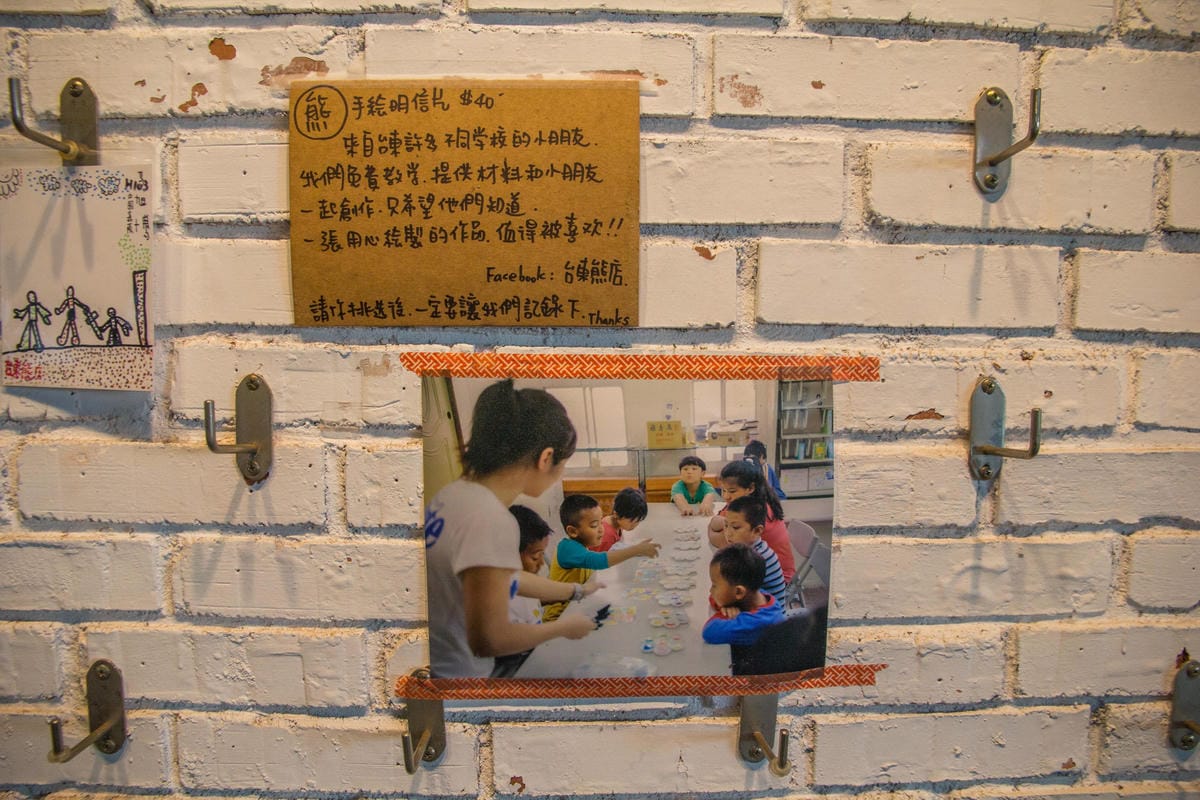 熊 手绘明信片 $40
來自台東許多不同学校的小朋友.
我們免費教学.提供材料和小朋友
一起創作.只希望他們知道.
一張用心绘製的作品.值得被喜欢!!
Facebook: 台東熊店.
請你挑选後.一定要讓我們記錄下.Thanks